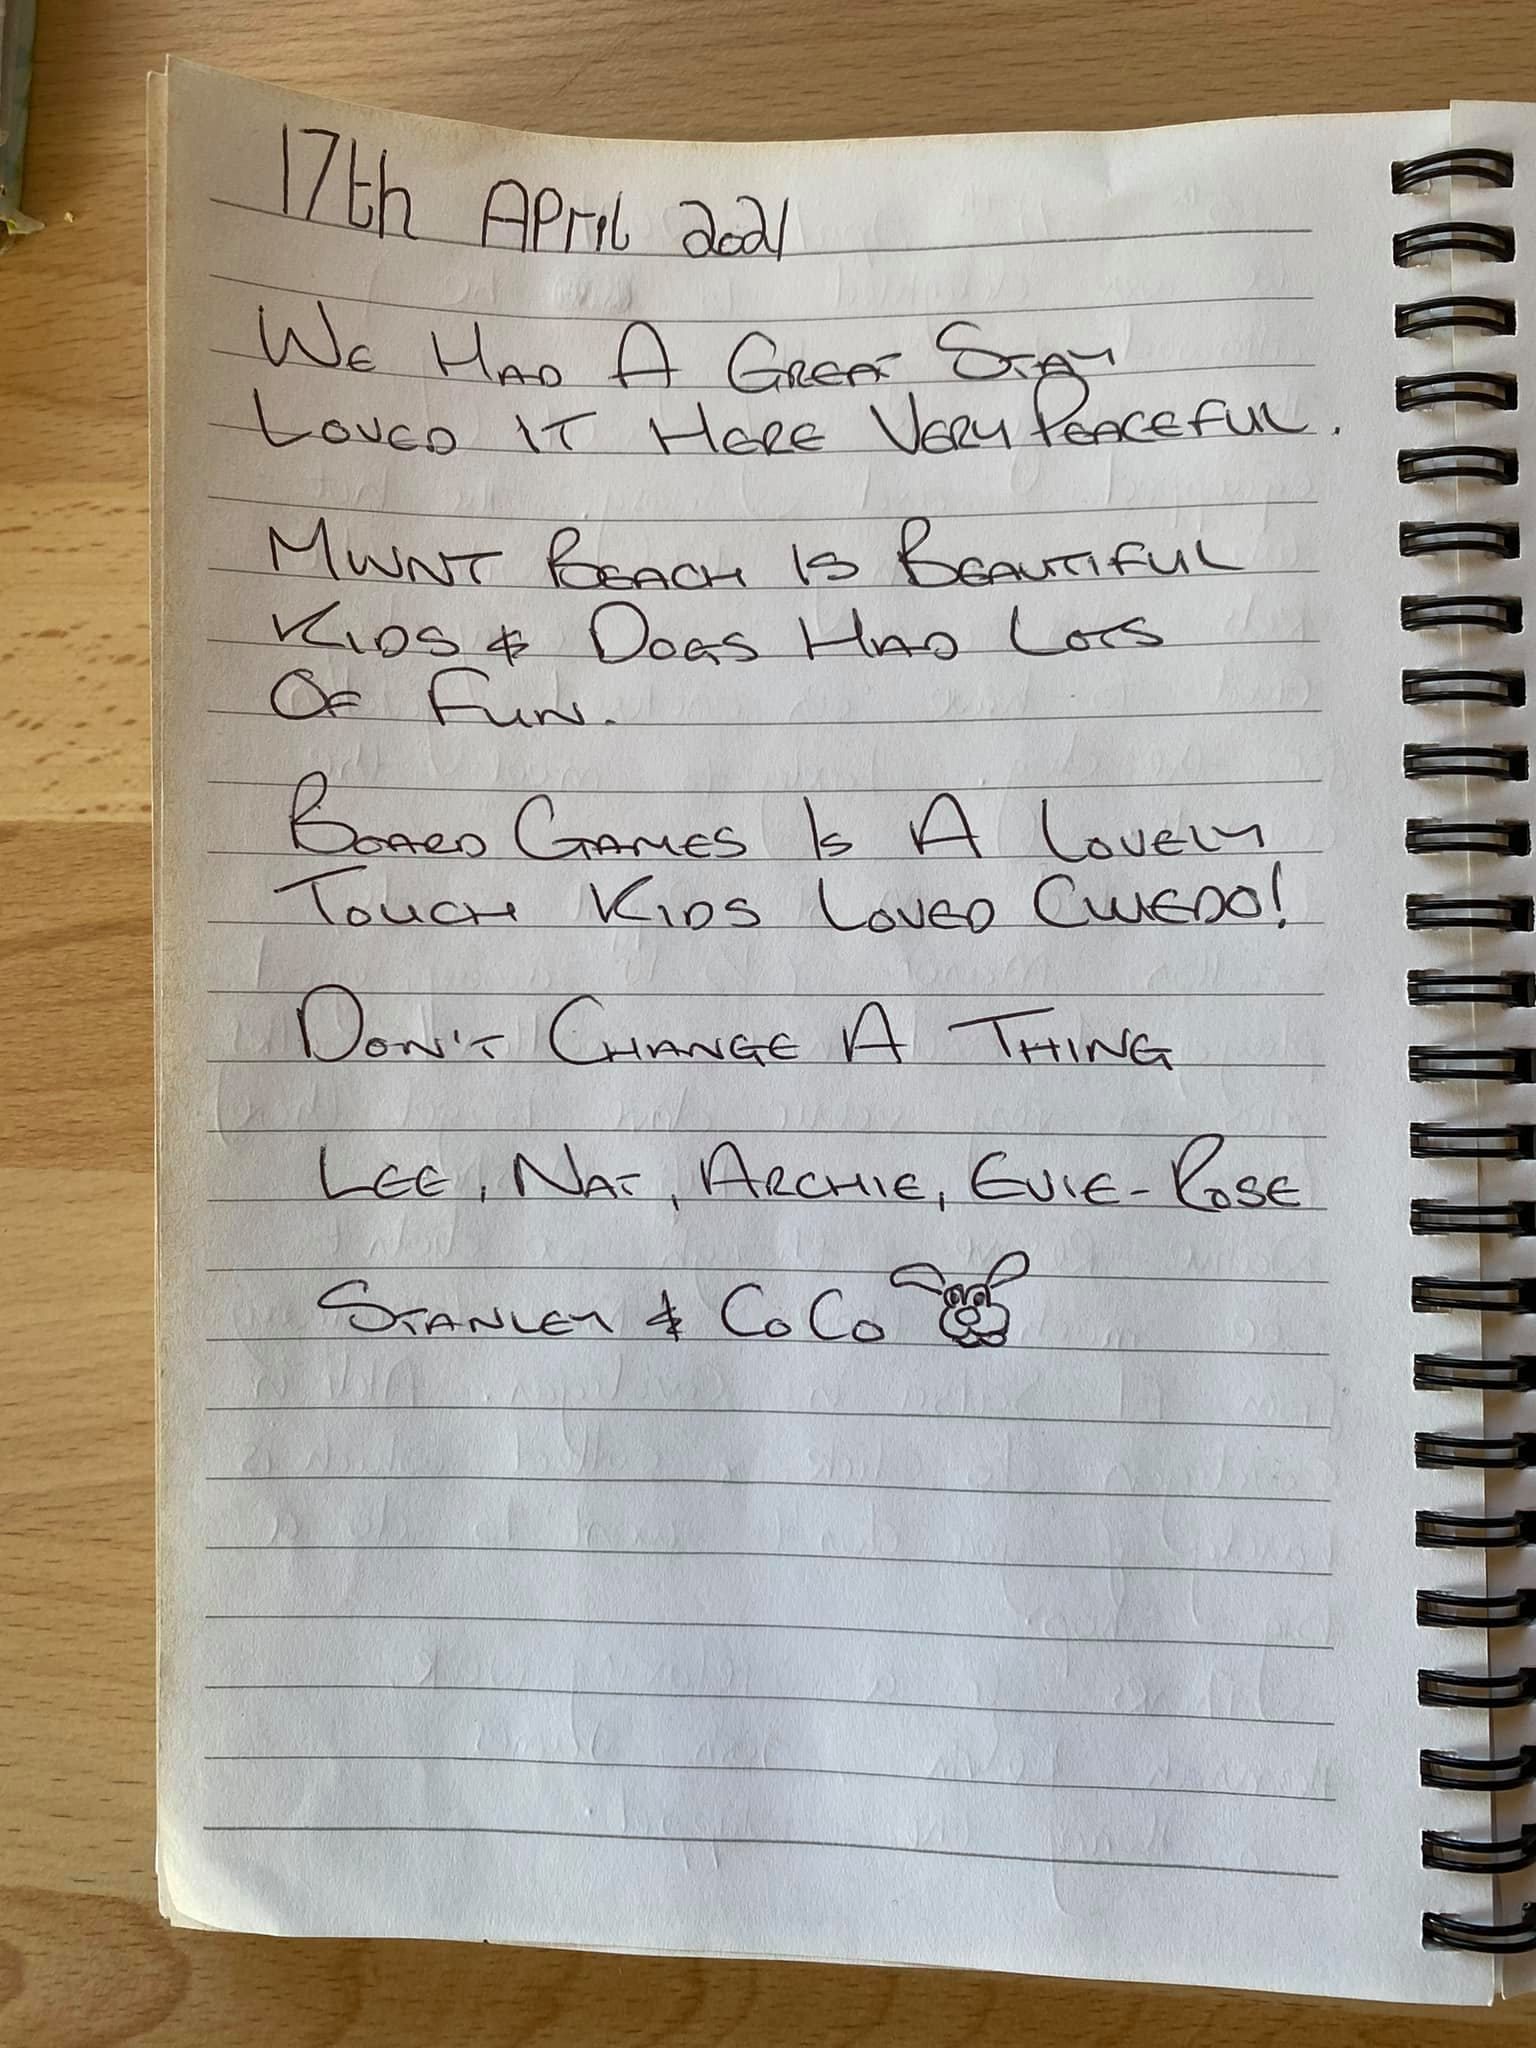 17th April 2021
We Had A Great Stay
Loved It Here Very Peaceful.
Mwnt Beach Is Beautiful
Kids & Dogs Had Lots
Of Fun.
Board Games Is A Lovely
Touch Kids Loved Cluedo!
Don't Change A Thing
Lee, Nat, Archie, Evie-Rose
Stanley & CoCo